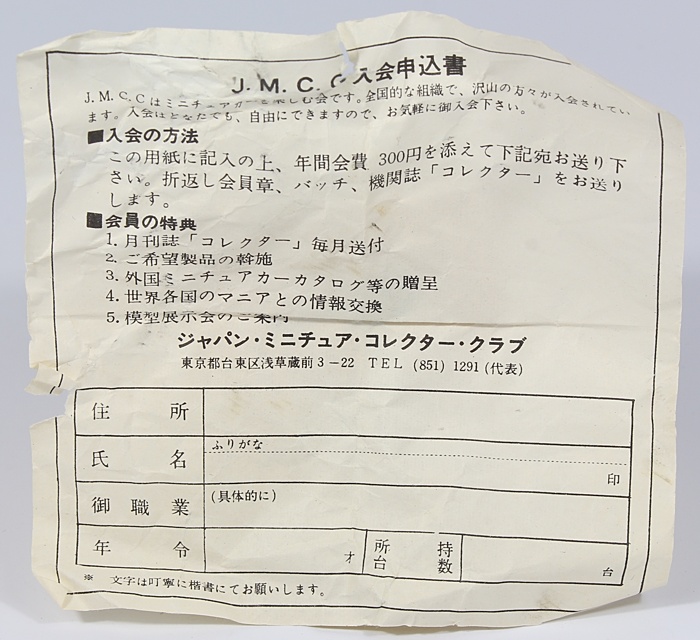 J.M.C.C 入会申込書
J.M.C.Cはミニチュアカーを楽しむ会です。全国的な組織で、沢山の方々が入会されてい
ます。入会はどなたでも、自由にできますので、お気軽に御入会下さい。
■入会の方法
この用紙に記入の上、年間会費 300円を添えて下記宛お送り下
さい。折返し会員章、バッチ、機関誌「コレクター」をお送り
します。
■会員の特典
1. 月刊誌「コレクター」毎月送付
2. ご希望製品の斡施
3. 外国ミニチュアカーカタログ等の贈呈
4. 世界各国のマニアとの情報交換
5. 模型展示会のご案内
ジャパン・ミニチュア・コレクター・クラブ
東京都台東区浅草蔵前3-22 TEL (851) 1291 (代表)
住所
ふりがな
氏名 印
御職業 (具体的に)
年令 才 所持台数 台
※ 文字は叮寧に楷書にてお願いします。